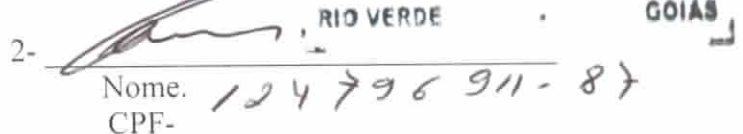 RIO VERDE GOIAS
2-
Nome. 124 796 911-87
CPF-